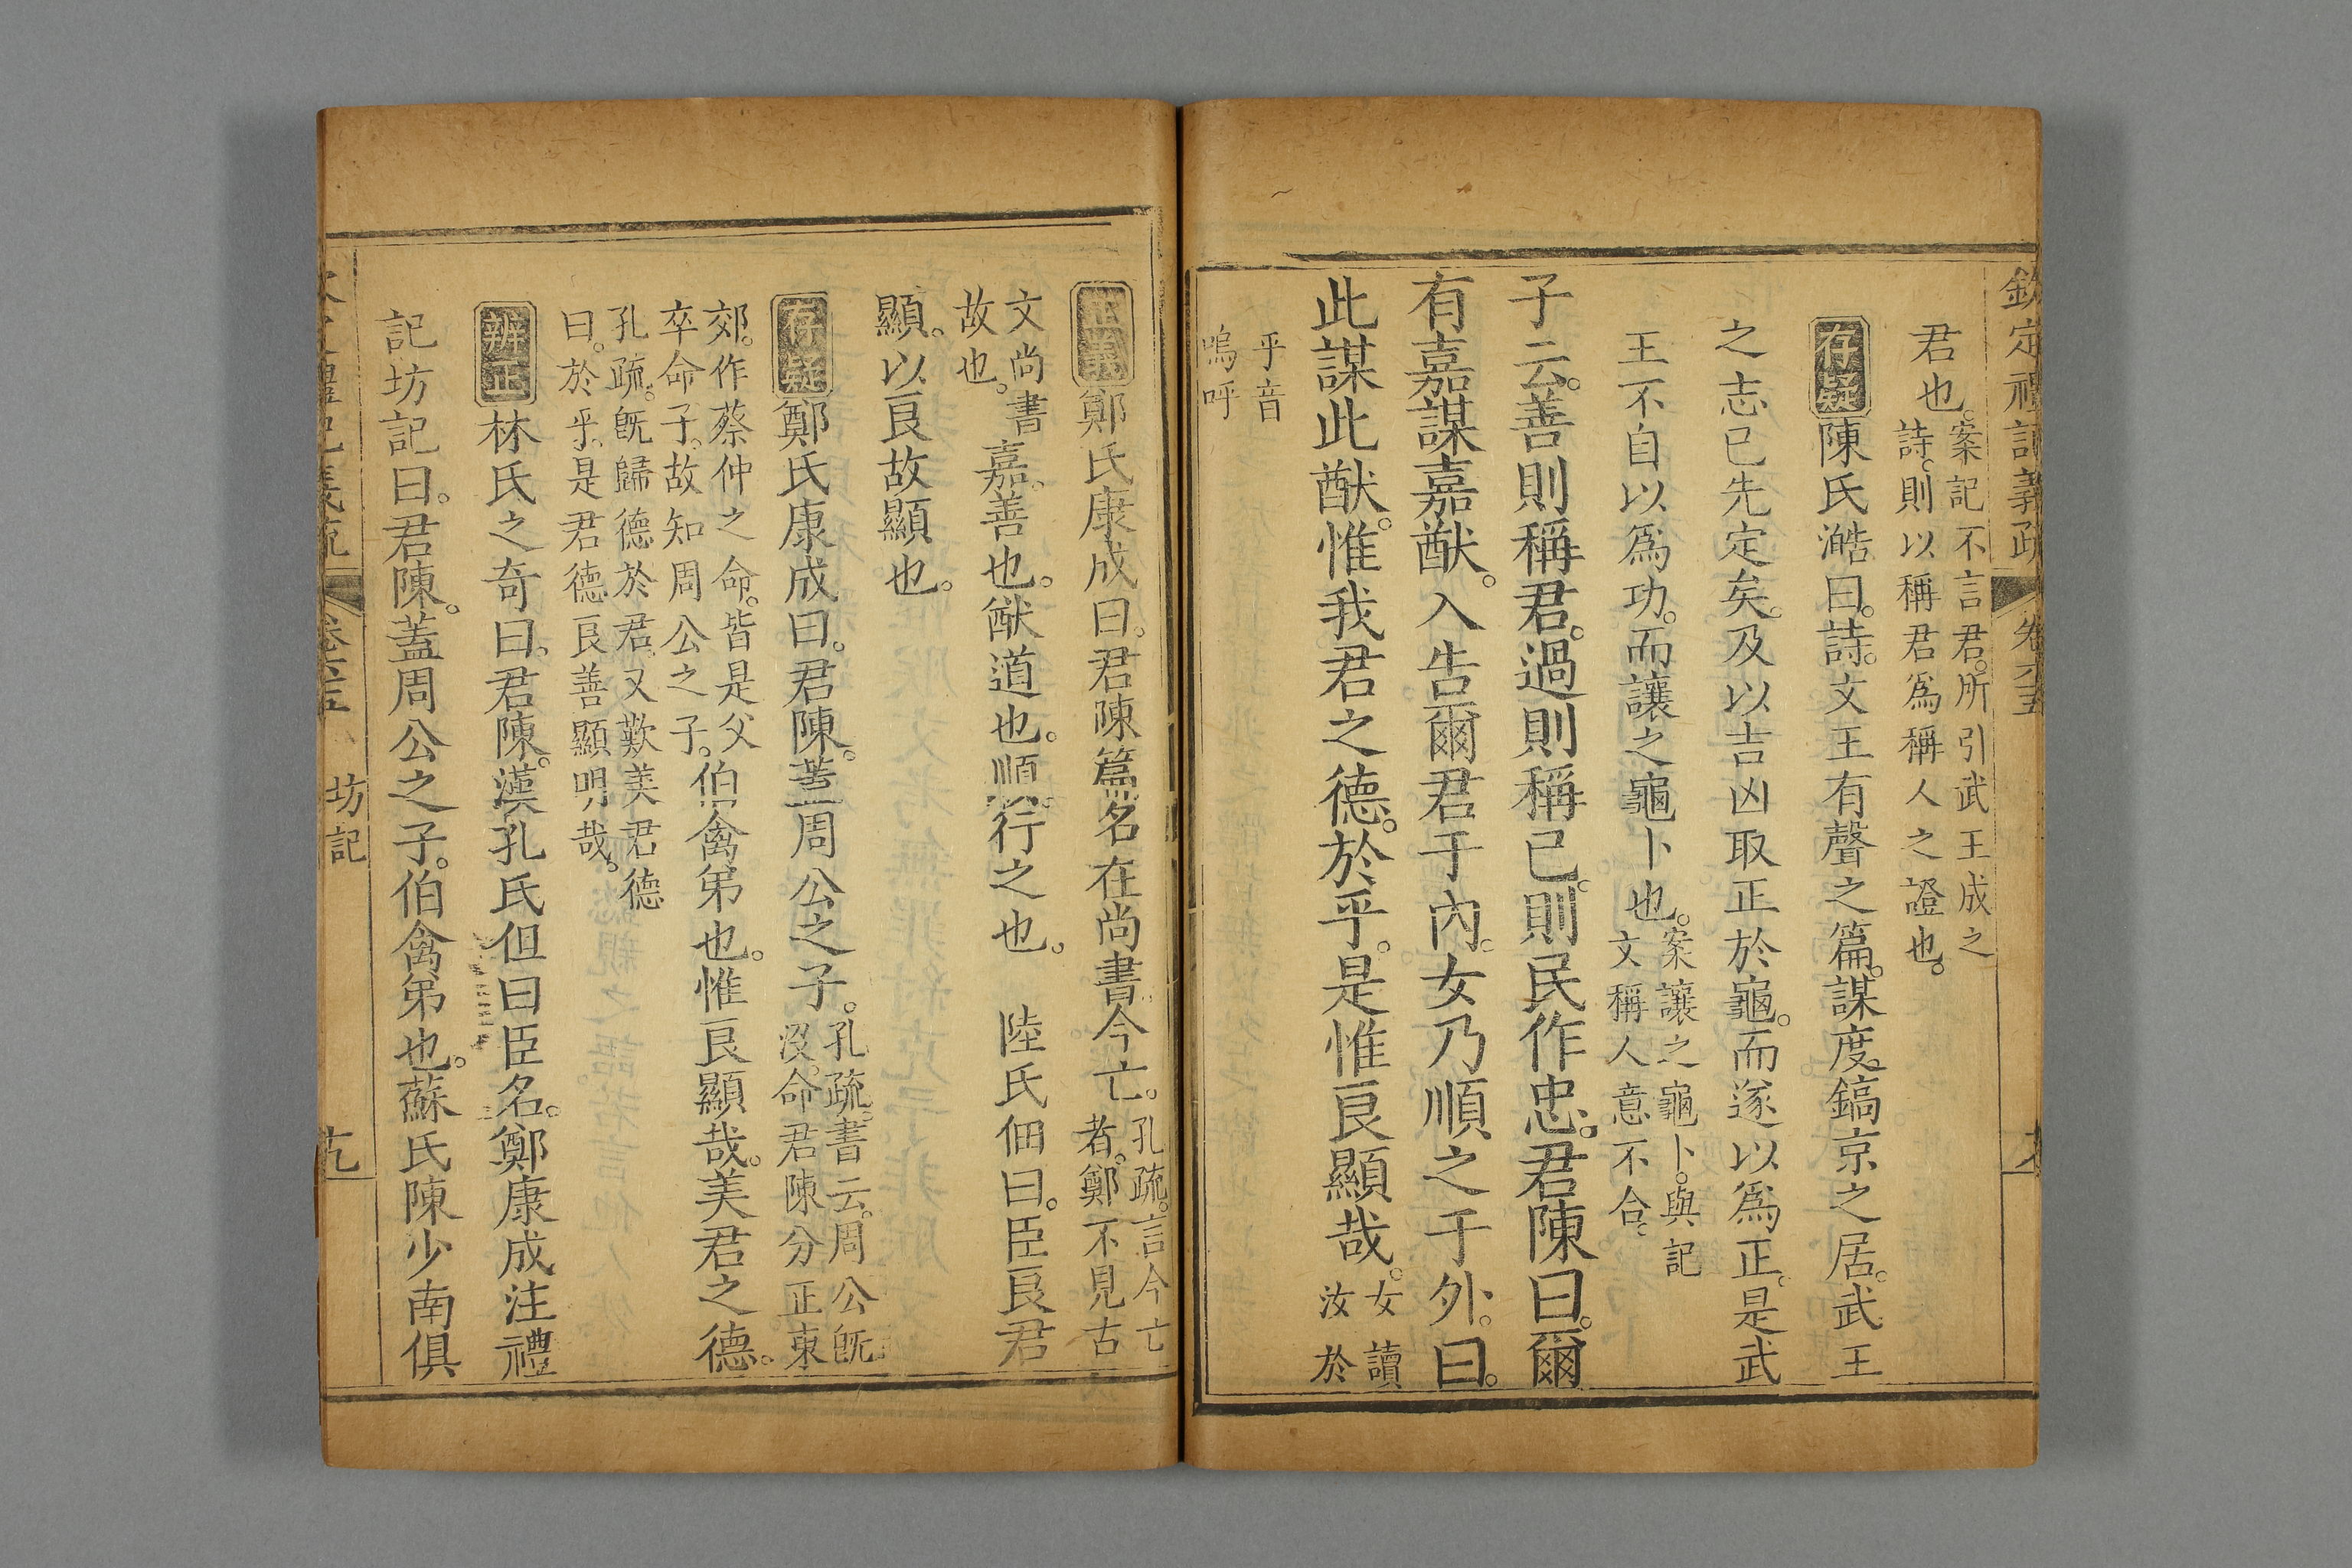 欽定禮記義疏 卷六十五
君也。案記不言君。所引武王成之
詩。則以稱君爲稱人之證也。
存疑 陳氏澔曰。詩。文王有聲之篇。謀度。鎬京之居。武王
之志已先定矣。及以吉凶取正於龜。而遂以爲正。是武
王不自以爲功。而讓之龜卜也。案讓之龜卜。與記
文稱人意不合。
子云。善則稱君。過則稱已。則民作忠。君陳曰。爾
有嘉謀嘉猷。入告爾君于內。女乃順之于外。曰。
此謀此猷。惟我君之德。於乎。是惟良顯哉。女讀
汝於
乎音
嗚呼
正義 鄭氏康成曰。君陳篇名在尚書今亡。孔疏。言今亡
者。鄭不見古
文尚書
故也。嘉。善也。猷道也。順行之也。 陸氏佃曰。臣良君
顯。以良故顯也。
存疑 鄭氏康成曰。君陳。蓋周公之子。孔疏。書云。周公旣
沒。命君陳分正東
郊。作蔡仲之命。皆是父
卒命子。故知周公之子。伯禽弟也。惟良顯哉。美君之德。
孔疏。旣歸德於君。又歎美君德
曰。於乎。是君德良善顯明哉。
辨正 林氏之奇曰。君陳。漢孔氏但曰臣名。鄭康成注禮
記坊記曰。君陳。蓋周公之子。伯禽弟也。蘇氏陳少南俱
禮記義疏 卷六十五 坊記